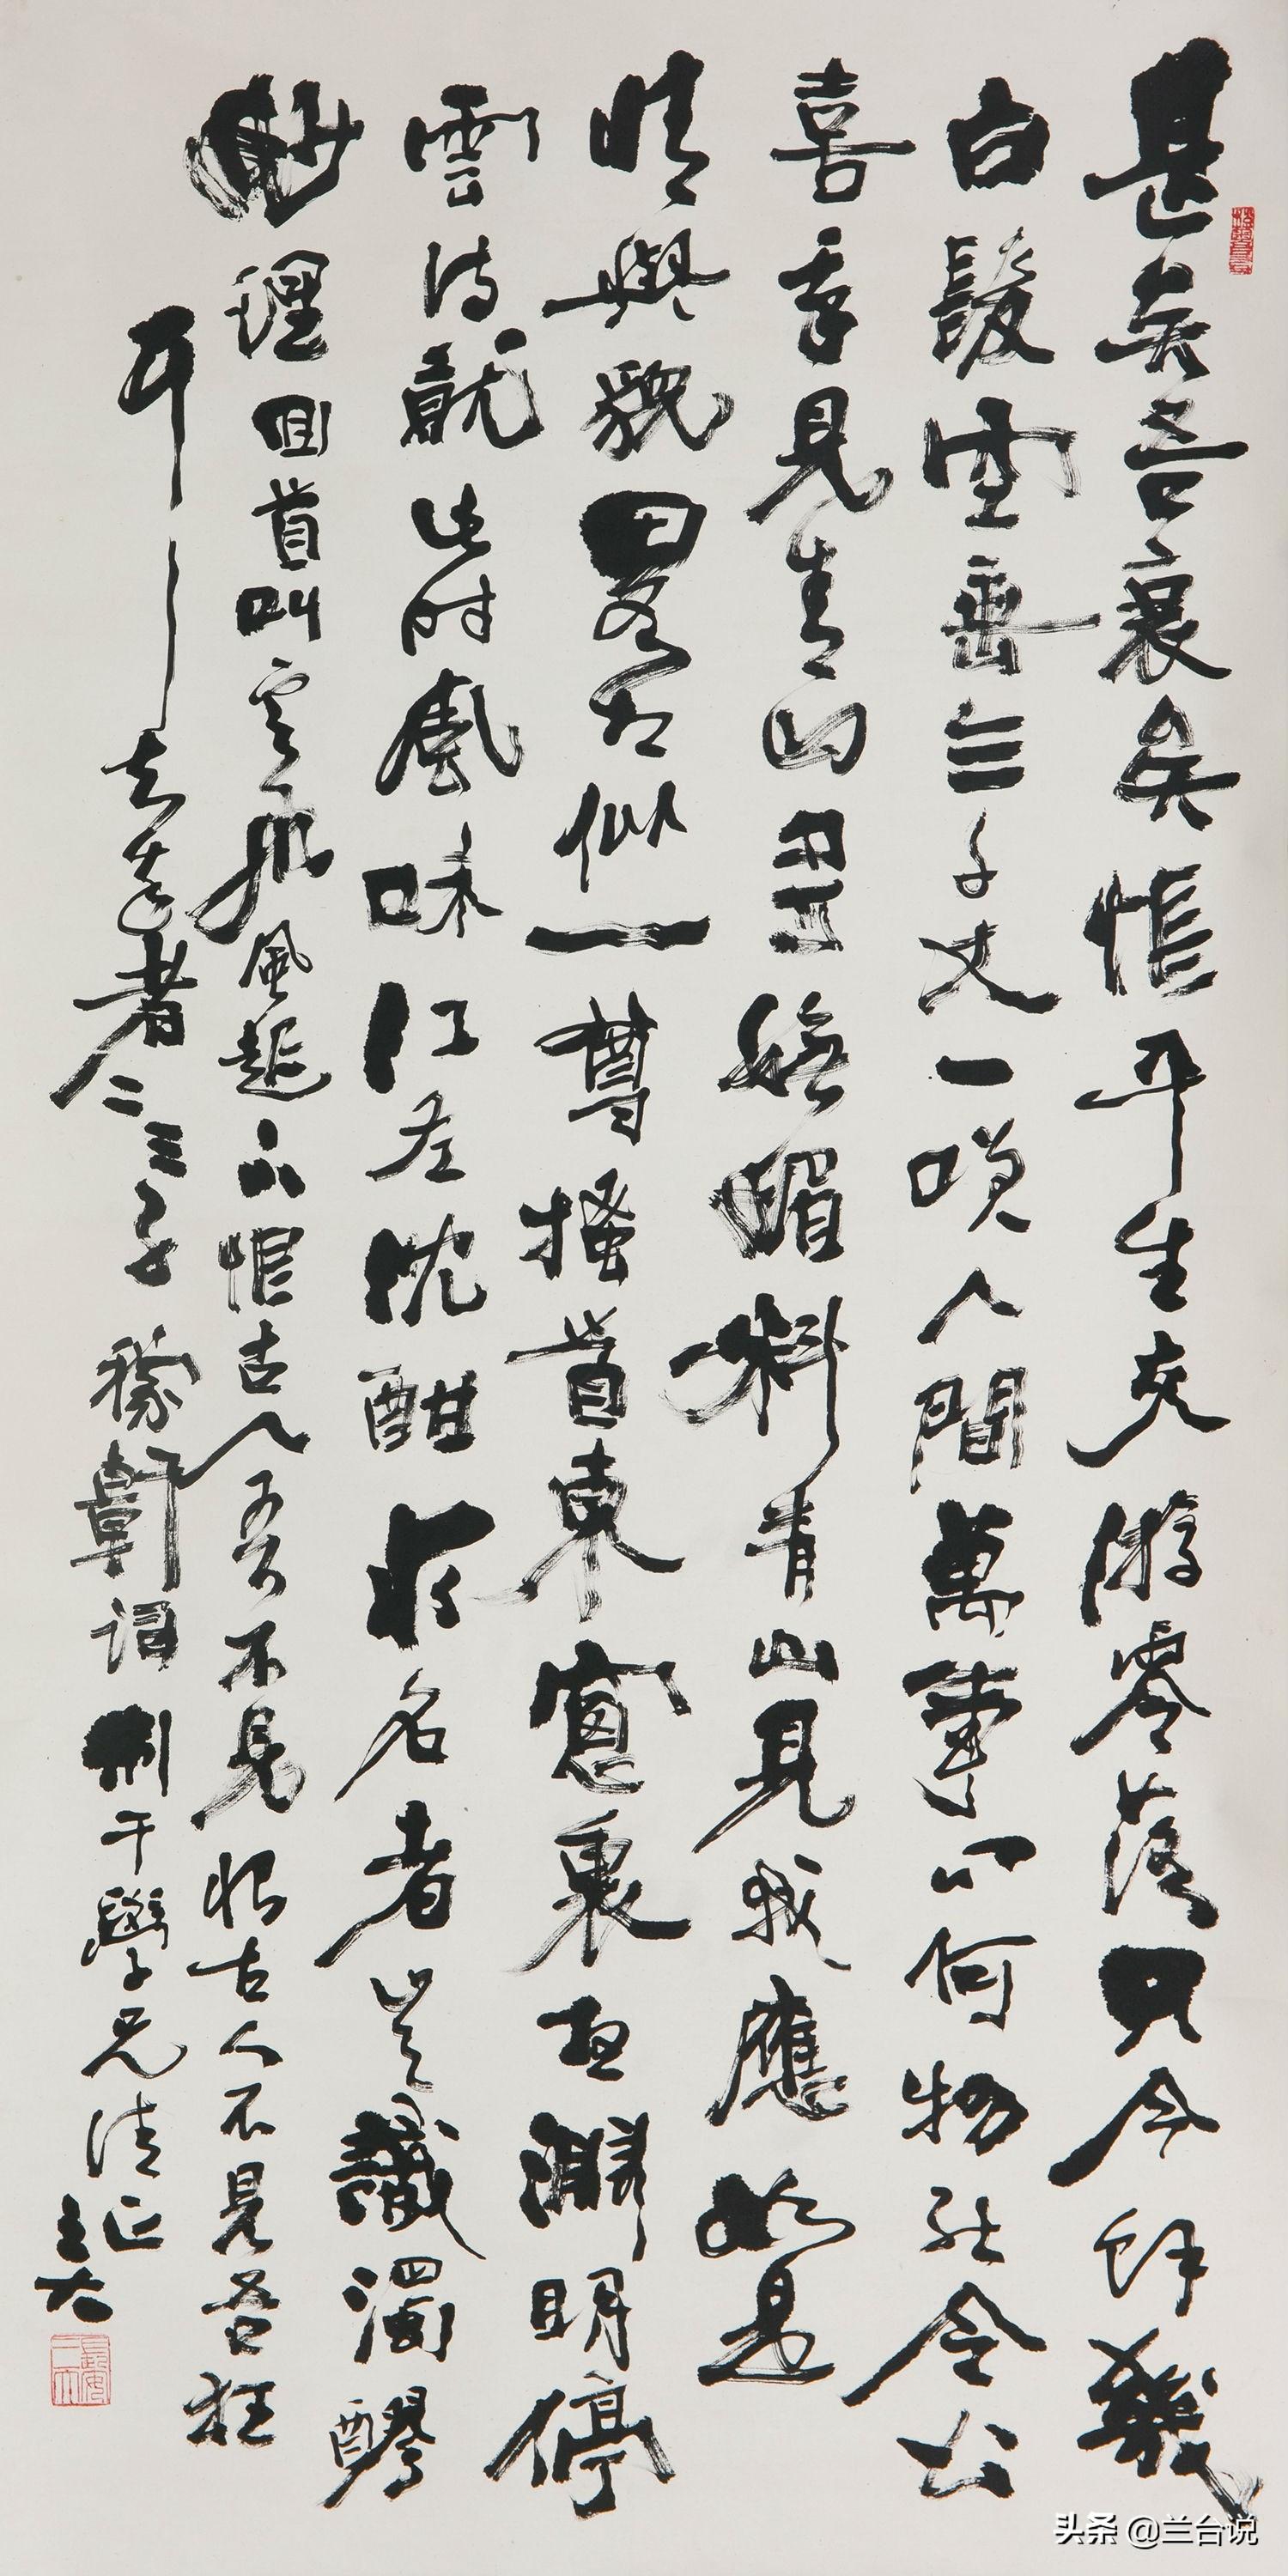 甚矣吾衰矣悵平生交游零落只今餘幾
白髮空垂三千丈一笑人間萬事問何物能令公
喜吾見青山多嫵媚料青山見我應如是
情與貌略相似一尊搔首東窗裏想淵明停
雲詩就此時風味江左沈酣求名者豈識濁醪
妙理回首叫雲飛風起不恨古人吾不見恨古人不見吾狂
耳知我者二三子 稼軒詞 學兄法正
头条 @兰台说